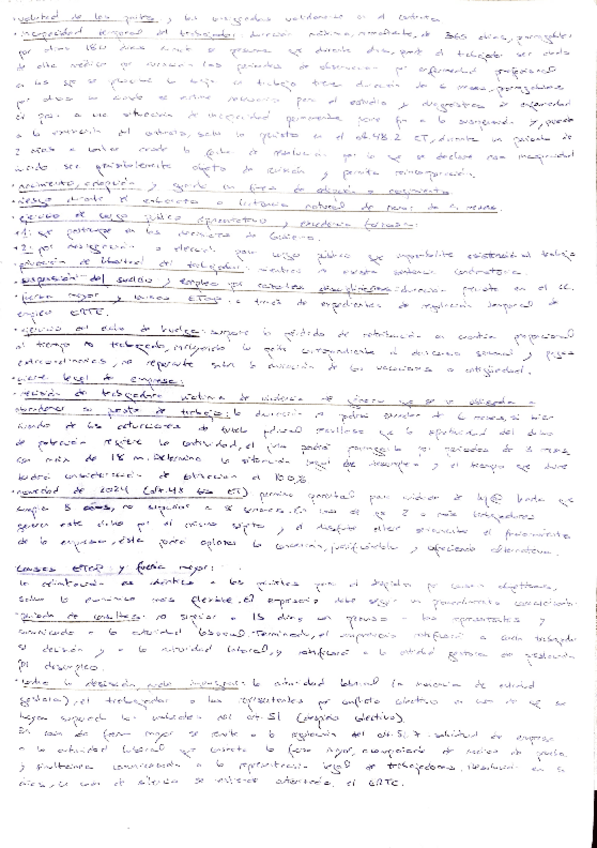 · voluntad de las partes, las consignadas válidamente en el contrato
· incapacidad temporal del trabajador: duración máxima, inmediata, de 365 días, prorrogables
por otros 180 días cuando se presuma que durante dicho el trabajador ser dado
de alta médica por curación. Los periodos de observación por enfermedad profesional
en los que se la baja en trabajo tiene duración de 6 meses, prorrogables
por otros seis cuando se estime necesario para el estudio y diagnóstico de enfermedad
a una situación de incapacidad permanente pone fin a la suspensión y,
a la del contrato, salvo lo previsto en el art. 48.2 ET, durante un periodo de
2 años a contar desde la fecha de resolución por la que se declare esa incapacidad
ser previsiblemente objeto de revisión y permita reincorporación.
· nacimiento, adopción y
· riesgo durante el embarazo o lactancia natural de menor de 9 meses.
· ejercicio de cargo público representativo y excedencia forzosa:
·2: por designación o elección para cargo público que imposibilite asistencia al trabajo
· privación de libertad del trabajador: mientras no exista sentencia condenatoria.
· suspensión del sueldo y empleo por razones disciplinarias: duración prevista en el CC.
· fuerza mayor y causas ETOP: a través de expedientes de regulación temporal de
empleo ERTE.
· ejercicio del derecho de huelga: supone la pérdida de retribución en cuantía proporcional
al tiempo no trabajado, incluyendo la parte correspondiente al descanso semanal y pagas
extraordinarias, no repercute sobre la duración de las vacaciones o antigüedad.
· cierre legal de empresa:
· decisión de trabajadora víctima de violencia de género que se ve obligada a
abandonar su puesto de trabajo: la duración no podrá exceder de 6 meses, si bien
cuando de las actuaciones de tutela judicial resultase que la efectividad del dcho
de protección requiere la continuidad, el juez podrá prorrogarlo por periodos de 3 meses
con máx de 18 m. Determina la situación legal de desempleo y el tiempo que dure
tendrá consideración de cotización al 100%
· novedad de 2024 (art. 48 bis ET) permiso parental para cuidado de hij@ hasta que
cumpla 8 años, no superior a 8 semanas. En caso de que 2 o más trabajadores
generen este dcho por el mismo sujeto y el disfrute altere seriamente el funcionamiento
de la empresa, ésta podrá aplazar la concesión, justificándolo y ofreciendo alternativa.
Causas ETOP y fuerza mayor:
La delimitación es idéntica a las previstas para el despido por causas objetivas,
salvo la exigencia más flexible. El empresario debe seguir un procedimiento
· periodo de consultas: no superior a 15 días en proceso los representantes y
comunicado a la autoridad laboral. Terminado, el empresario notificará a cada trabajador
su decisión y a la autoridad laboral, y notificará a la entidad gestora de prestación
por desempleo.
· contra la decisión podrá impugnar: la autoridad laboral (a instancia de entidad
gestora), el trabajador o los representantes por conflicto colectivo en caso de que se
hayan superado los umbrales del art. 51 (despido colectivo).
En caso de fuerza mayor se remite a la regulación del art. 51.7: solicitud de empresa
a la autoridad laboral que constate la fuerza mayor, acompañada de medios de prueba
y simultánea comunicación a la representación legal de trabajadores. Resolución en 5
días, en caso de silencio se entiende autorizado el ERTE.